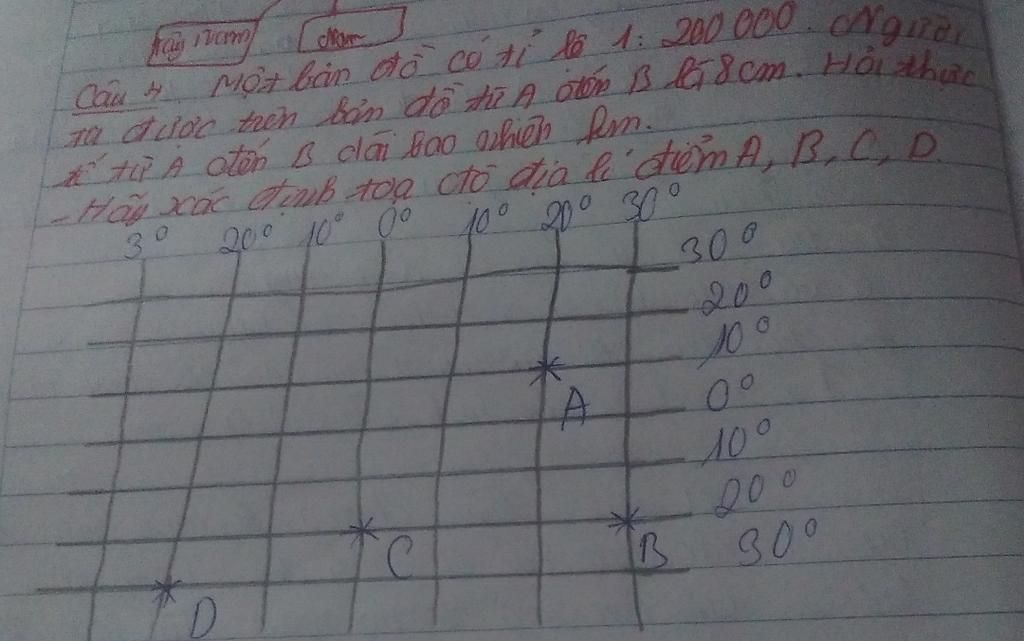 Tây Nam
Nam
Câu 4. Một bản đồ có tỉ lệ 1: 200 000. Người
ta được trên bản đồ từ A đến B là 8cm. Hỏi thực
tế từ A đến B dài bao nhiên km.
- Hãy xác định toạ độ địa lí điểm A, B, C, D.
3° 20° 10° 0° 10° 20° 30°
30°
20°
10°
A
0°
10°
20°
C B 30°
D